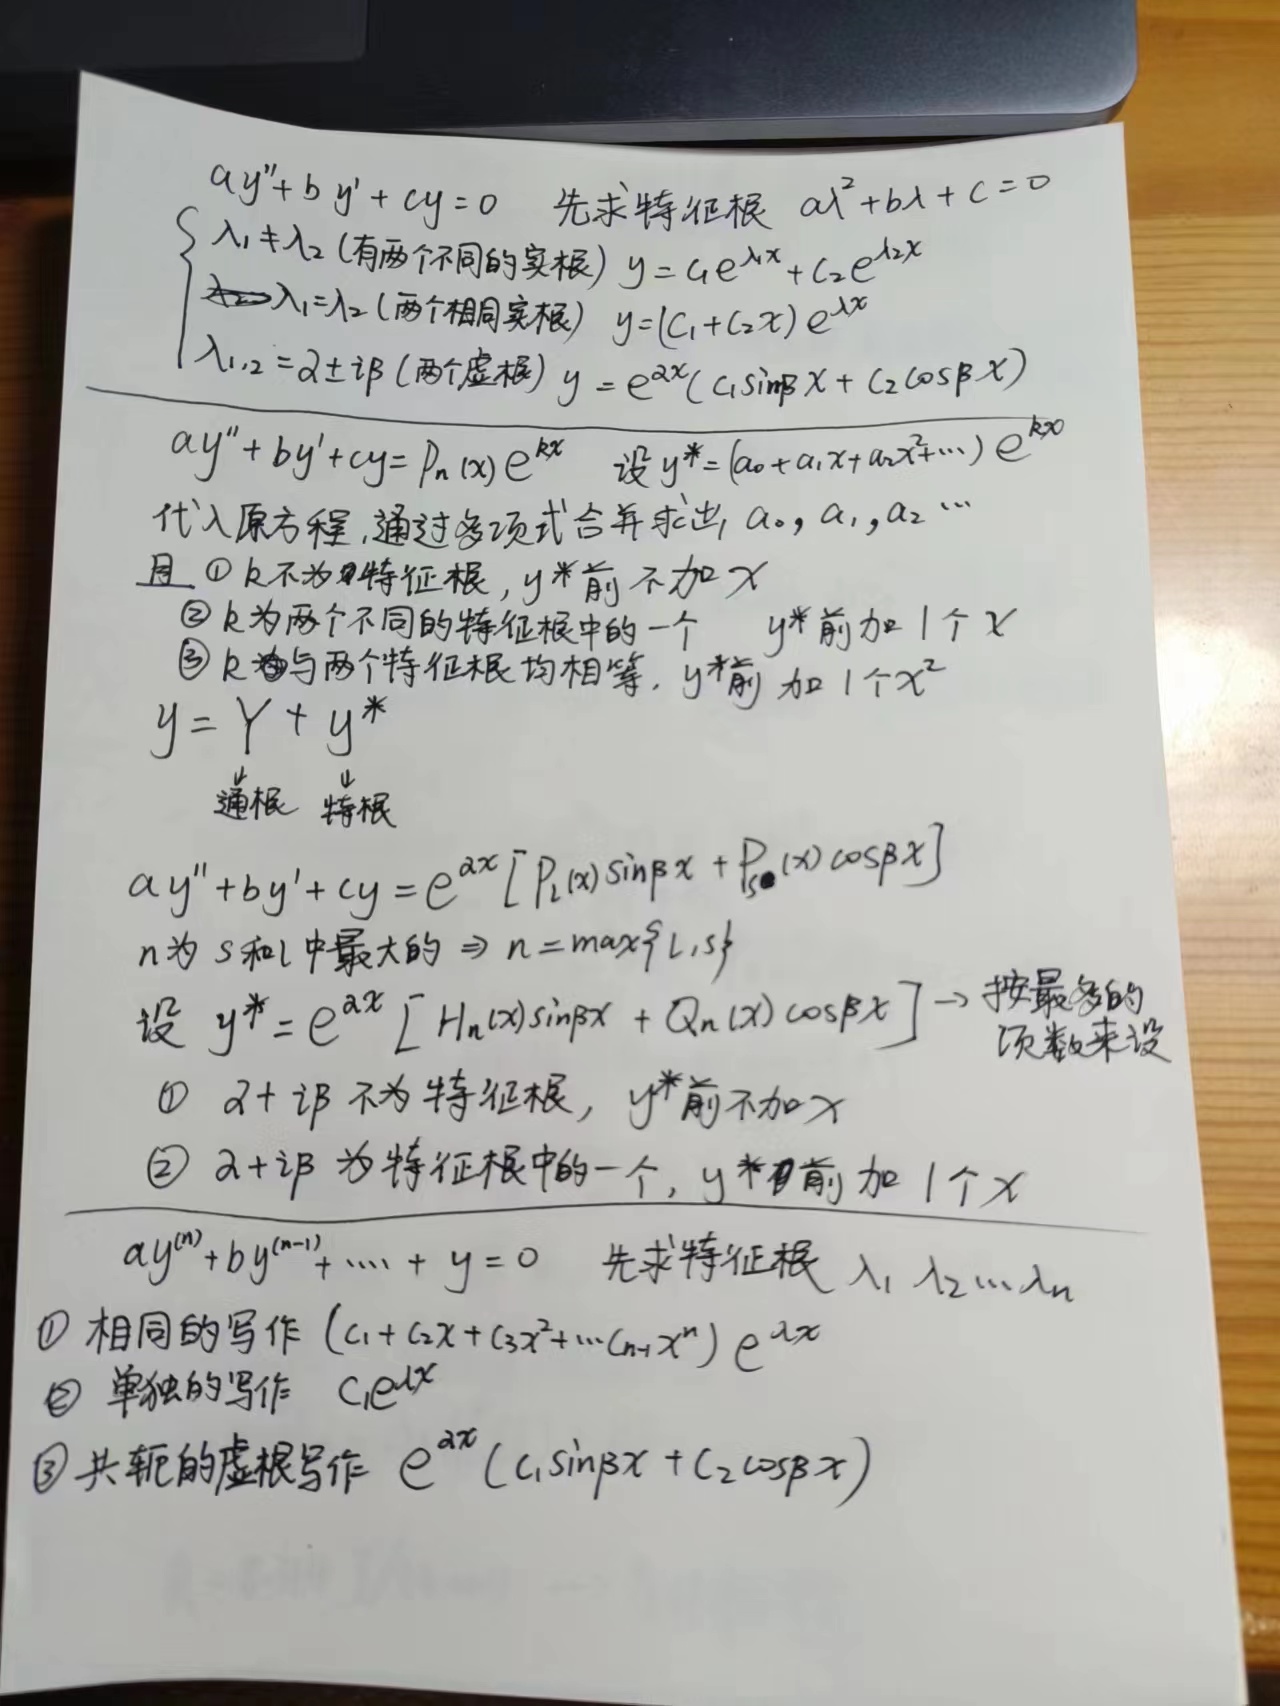 ay″+by′+cy=0 先求特征根 aλ²+bλ+c=0
λ₁≠λ₂(有两个不同的实根) y=c₁e^{λ₁x}+c₂e^{λ₂x}
λ₁=λ₂(两个相同实根) y=(c₁+c₂x)e^{λx}
λ₁,₂=α±iβ(两个虚根) y=e^{αx}(c₁sinβx+c₂cosβx)
ay″+by′+cy=Pₙ(x)e^{kx} 设y*=(a₀+a₁x+a₂x²+…)e^{kx}
代入原方程,通过多项式合并求出,a₀,a₁,a₂…
且①k不为特征根,y*前不加x
②k为两个不同的特征根中的一个 y*前加1个x
③k与两个特征根均相等,y*前加1个x²
y=Y+y*
↓ ↓
通根 特根
ay″+by′+cy=e^{αx}[P_L(x)sinβx+P_s(x)cosβx]
n为s和l中最大的⇒n=max{L,s}
设y*=e^{αx}[Hₙ(x)sinβx+Qₙ(x)cosβx]→按最多的
项数来设
①α+iβ不为特征根,y*前不加x
②α+iβ为特征根中的一个,y*前加1个x
ay^{(n)}+by^{(n-1)}+....+y=0 先求特征根 λ₁ λ₂…λₙ
①相同的写作(c₁+c₂x+c₃x²+…cₙ₊₁xⁿ)e^{λx}
②单独的写作 c₁e^{λx}
③共轭的虚根写作 e^{αx}(c₁sinβx+c₂cosβx)